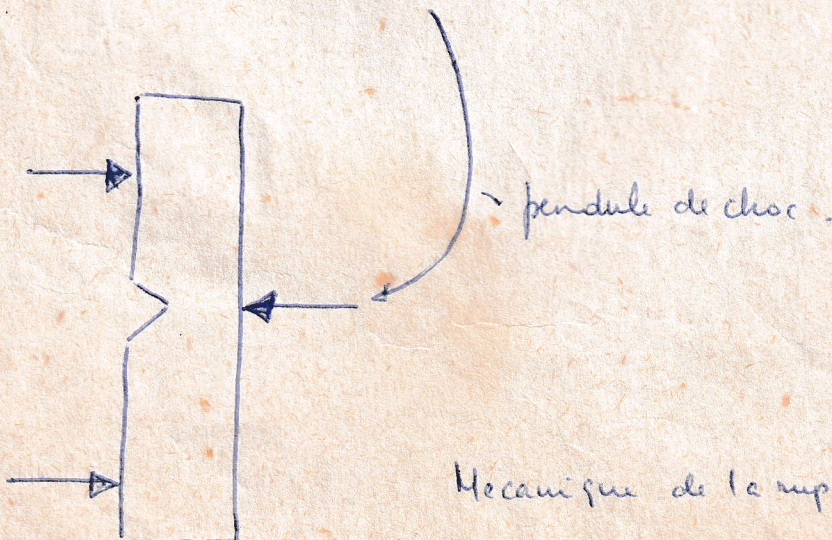 pendule de choc.
Mécanique de la rup